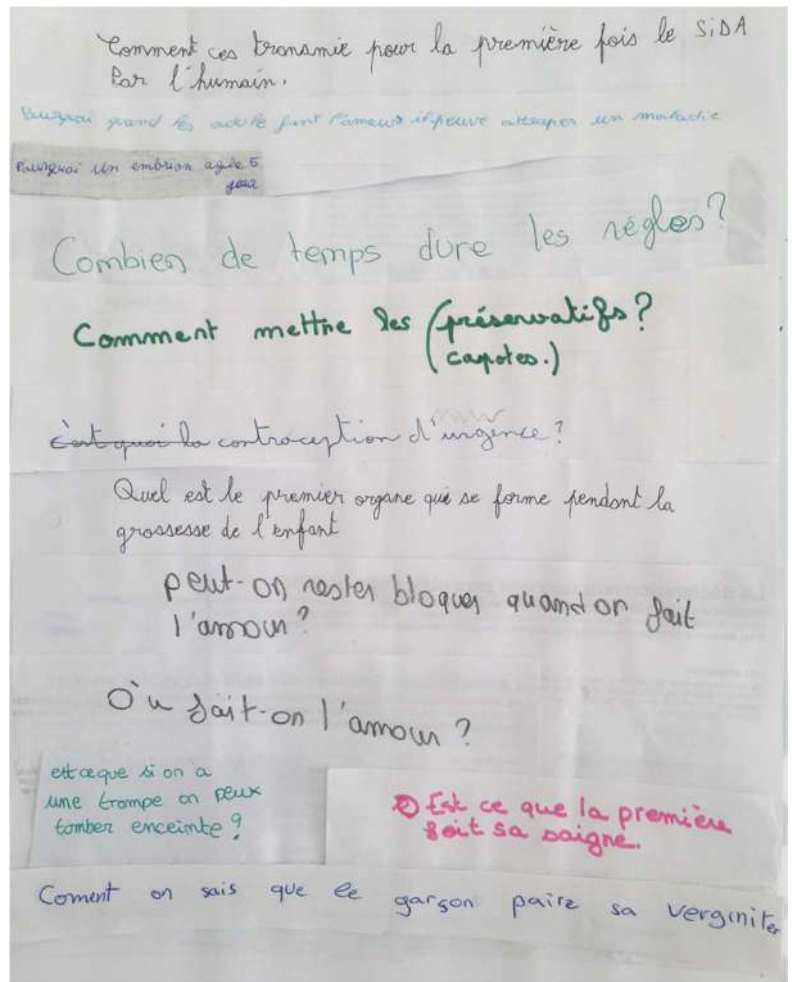 Comment ces transmie pour la première fois le SiDA
Par l'humain.
Pourquoi quand les adulte font l'amour il peuve attraper un maladie
Pourquoi un embrion agée 5
jour
Combien de temps dure les régles?
Comment mettre les (préservatifs?
(capotes.)
c'est quoi la contraception d'urgence?
Quel est le premier organe qui se forme pendant la
grossesse de l'enfant
peut-on rester bloquer quand on fait
l'amour?
Où fait-on l'amour?
est ce que si on a
une trompe on peux
tomber enceinte?
Est ce que la première
foit sa saigne.
Coment on sais que le garçon paire sa verginiter